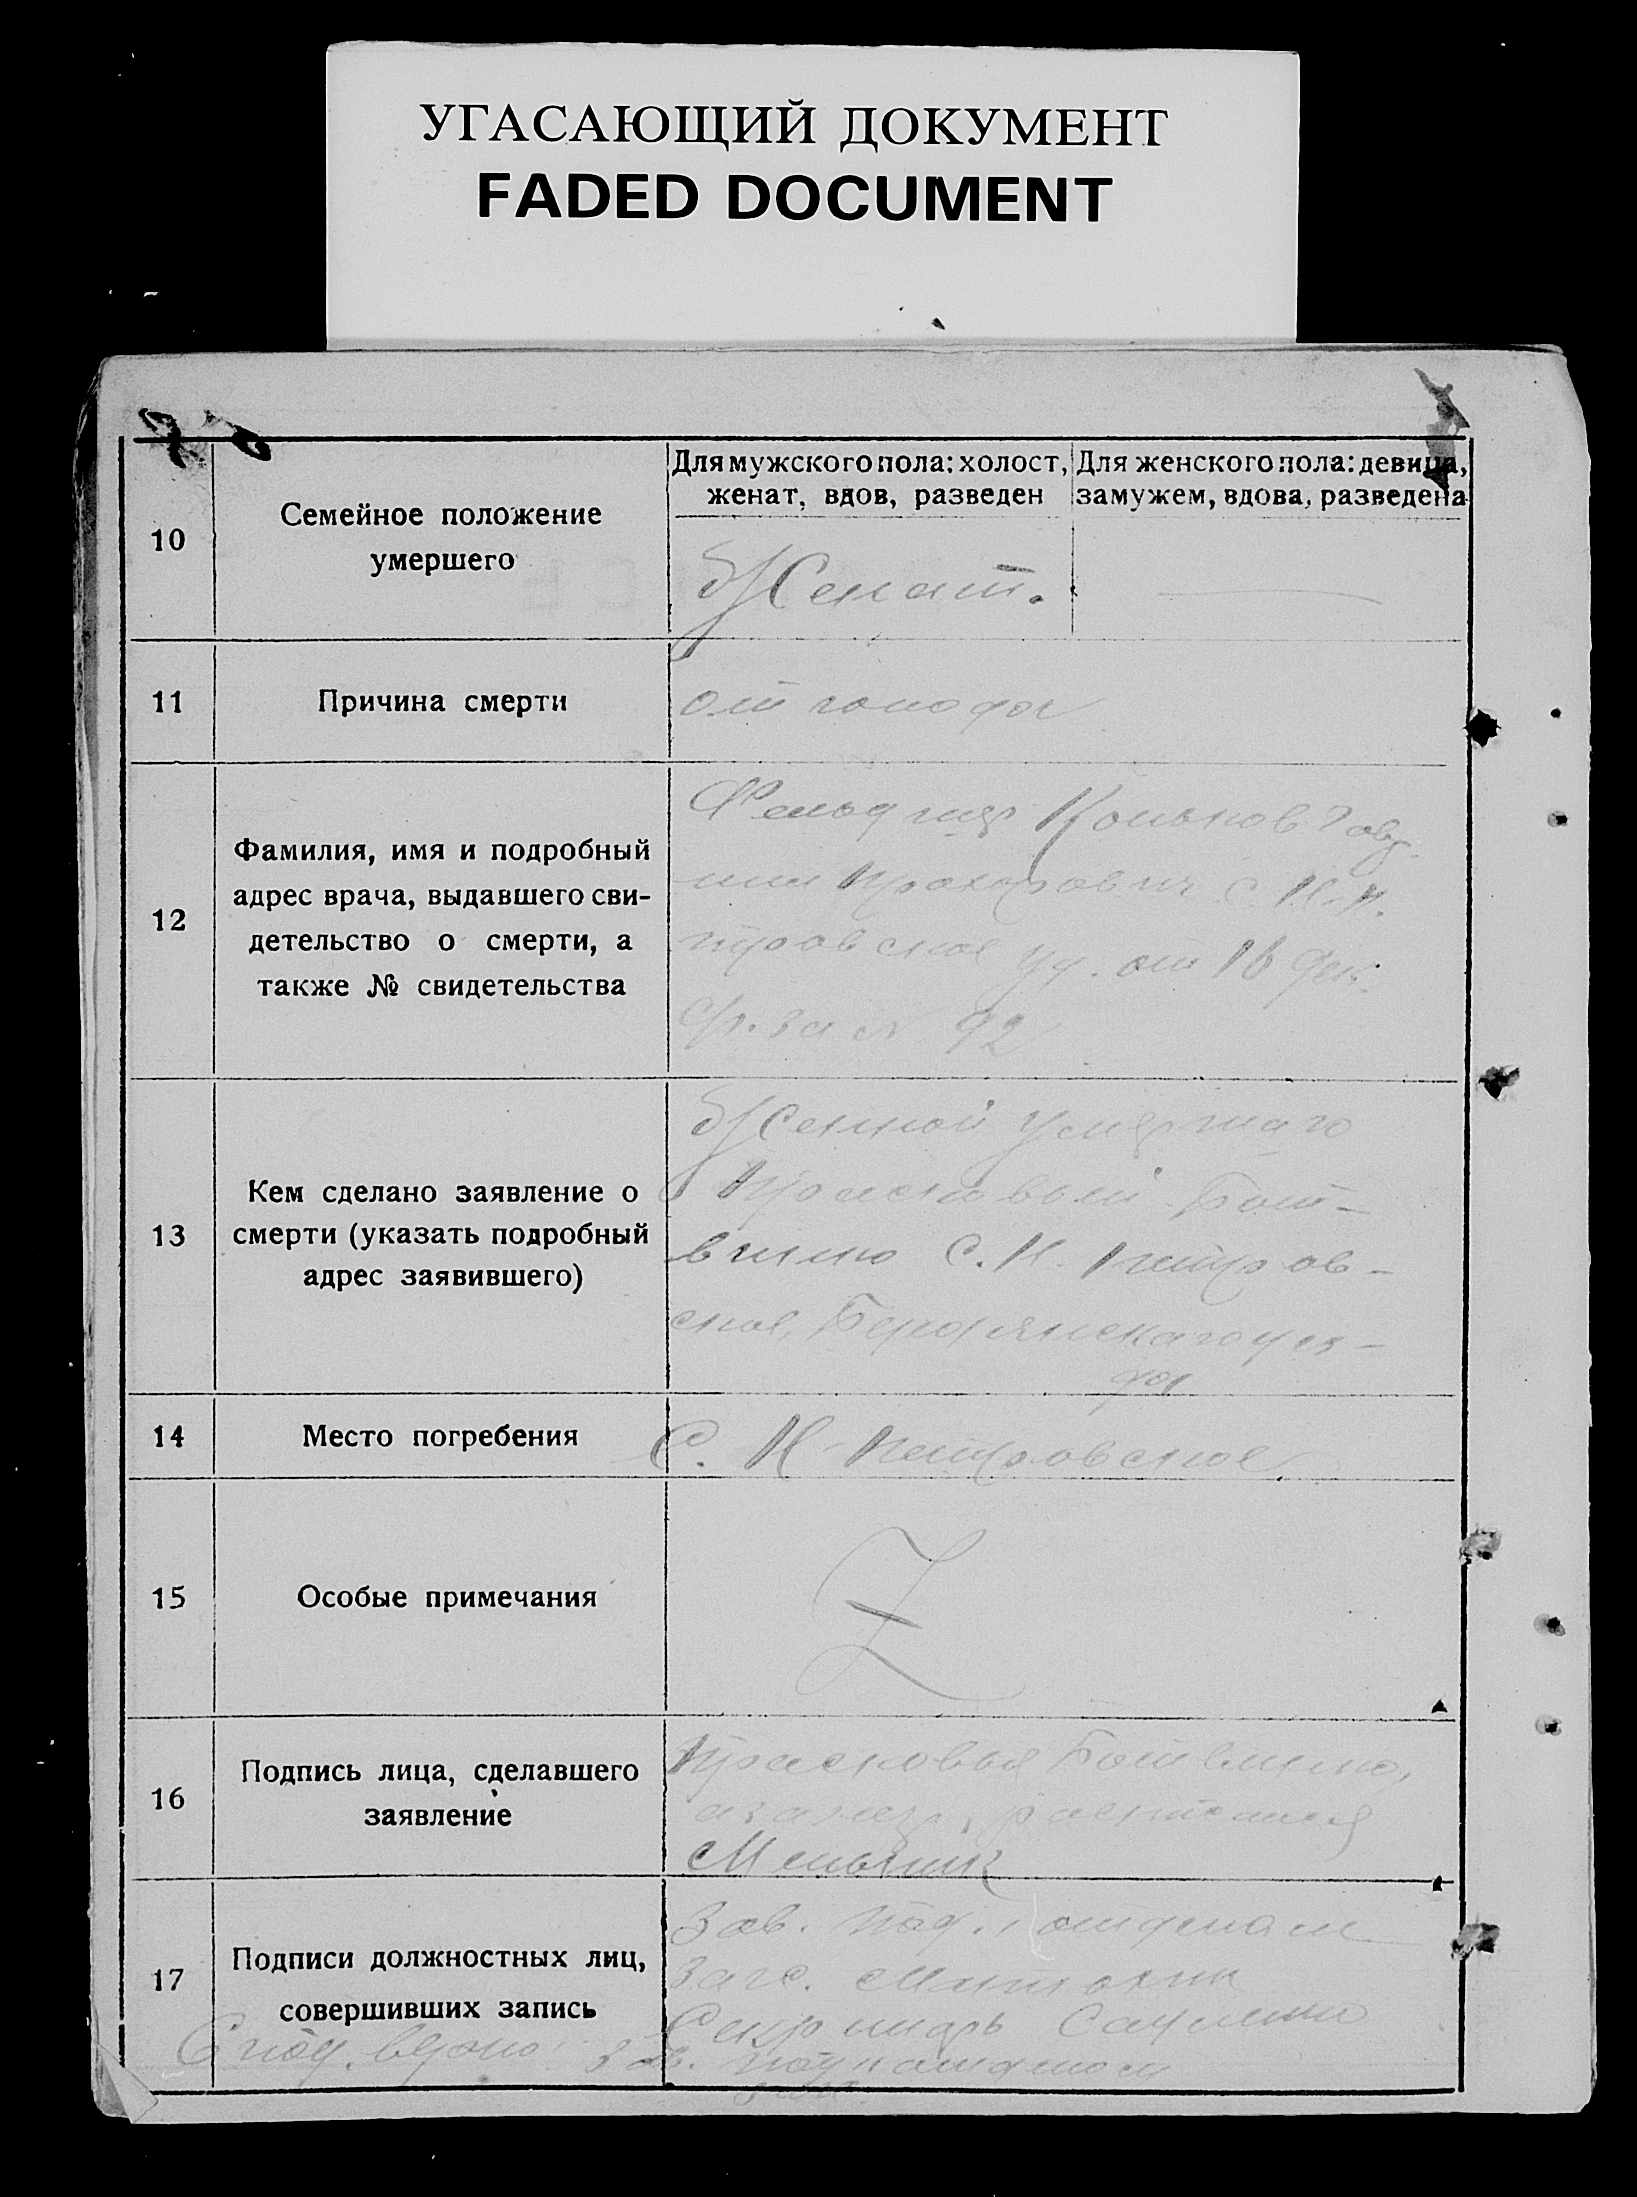 УГАСАЮЩИЙ ДОКУМЕНТ
FADED DOCUMENT
10
Семейное положение
умершего
Для мужского пола: холост,
женат, вдов, разведен
Для женского пола: девица,
замужем, вдова, разведена
Женат.
11
Причина смерти
от голода
12
Фамилия, имя и подробный
адрес врача, выдавшего сви-
детельство о смерти, а
также № свидетельства
Фельдшер Коньков
Прохорович с. Н-П.
тровское уд. от 16 дек.
с/г. за № 92
13
Кем сделано заявление о
смерти (указать подробный
адрес заявившего)
Женной умершаго
Прасковьей Бот-
винно С. Н. Петров-
ское, Бердянскаго уез-
да
14
Место погребения
С. Н-Петровское
15
Особые примечания
Z
16
Подпись лица, сделавшего
заявление
Прасковья Ботвинно,
а за негр. расписался
Мельник
17
Подписи должностных лиц,
совершивших запись
Зав. под. отделом
Загс.
Секретарь
С под. верно: Зав. под. отделом